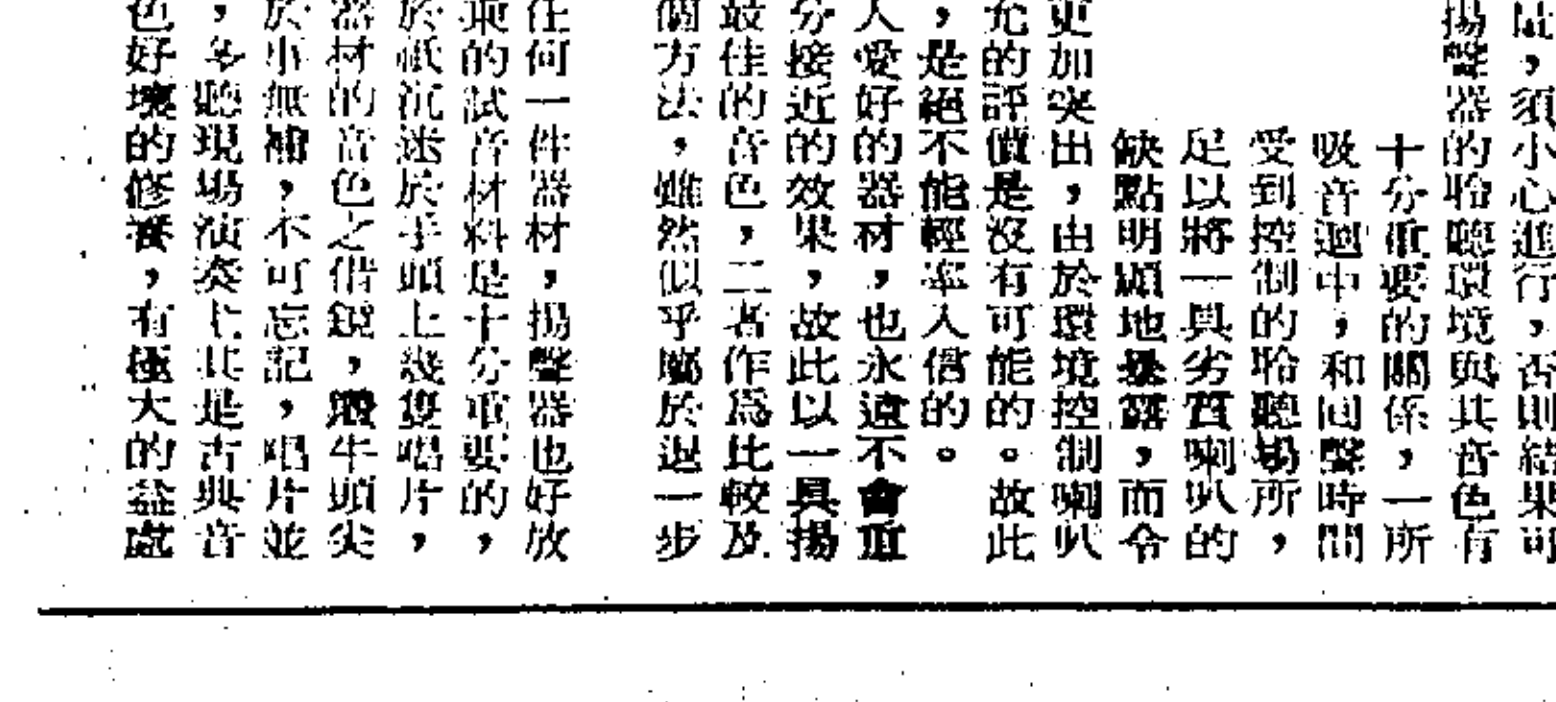 量，須小心進行，否則結果可
揚聲器的聆聽環境與其音色有
十分重要的關係，一所
吸音適中，和回聲時間
受到控制的聆聽場所，
足以將一具劣質喇叭的
缺點明顯地暴露，而令
更加突出，由於環境控制喇叭
允的評價是沒有可能的。故此
，是絕不能輕率入信的。
人愛好的器材，也永遠不會重
分接近的效果，故此以一具揚
最佳的音色，二者作為比較及
個方法，雖然似乎屬於退一步
任何一件器材，揚聲器也好放
取的試音材料是十分重要的，
於祇沉迷於手頭上幾隻唱片，
器材的音色之借鏡，鑽牛頭尖
於小無補，不可忘記，唱片並
，多聽現場演奏尤其是古典音
色好壞的修養，有極大的益處